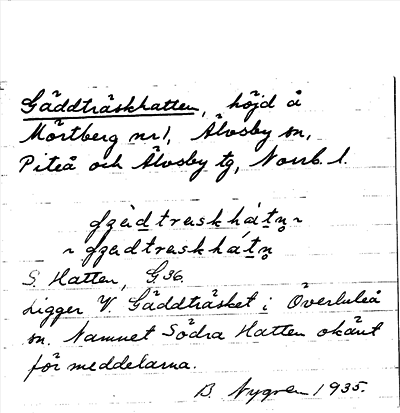 Gäddträskhatten, höjd å
Mörtberg nr 1, Älvsby sn,
Piteå och Älvsby tg, Norrb. l.
S. Hatten, G.36.
Ligger V. Gäddträsket i Överluleå
sn. Namnet Södra Hatten okänt
för meddelarna.
B. Nygren 1935.